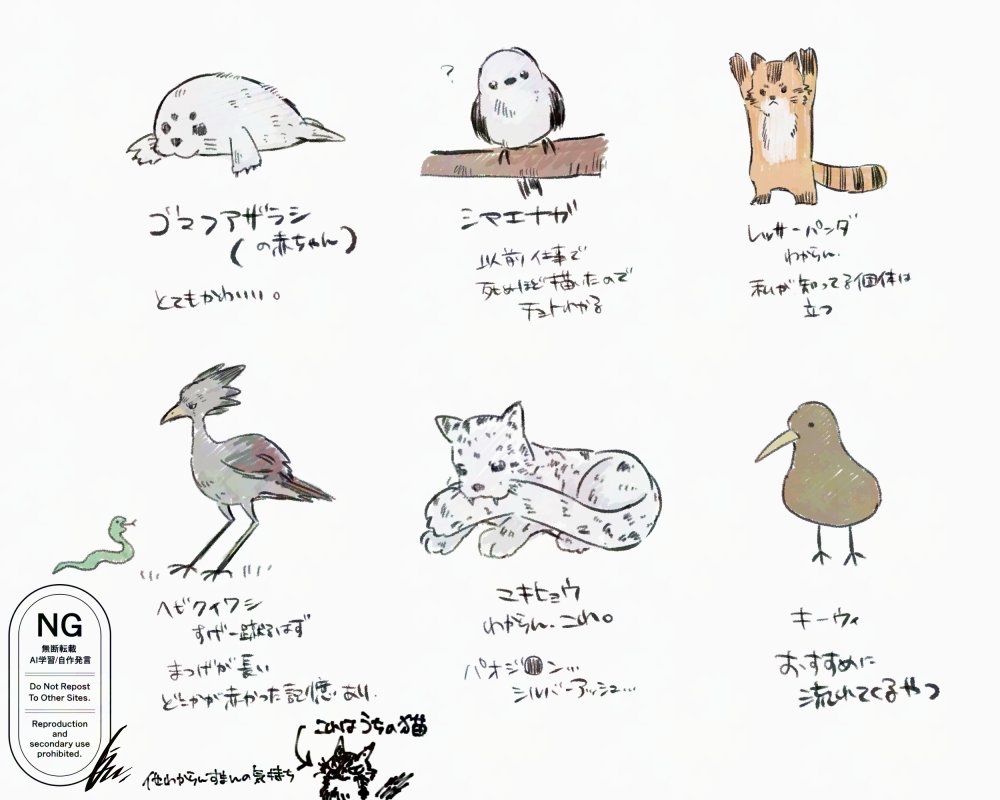 ゴマフアザラシ
(の赤ちゃん)
とてもかわいい。
シマエナガ
以前仕事で
死ぬほど描いたので
チョトわかる
レッサーパンダ
わからん.
私が知ってる個体は
立つ
ヘビクイワシ
すげー蹴るはず
まつげが長い
どこかが赤かった記憶あり.
ユキヒョウ
わからん.これ。
パオジ●ン…
シルバーアッシュ…
キーウィ
おすすめに
流れてくるやつ
これはうちの猫
他わからんすまんの気持ち
NG
無断転載
AI学習/自作発言
Do Not Repost
To Other Sites.
Reproduction
and
secondary use
prohibited.
?